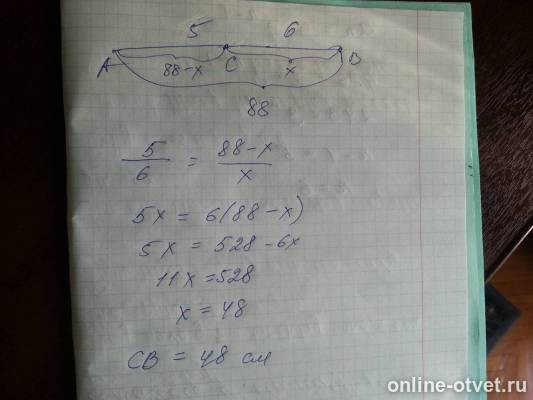 5 6
A 88-x C x B
88
5/6 = 88-x/x
5x = 6(88-x)
5x = 528-6x
11x = 528
x = 48
CB = 48 см
online-otvet.ru